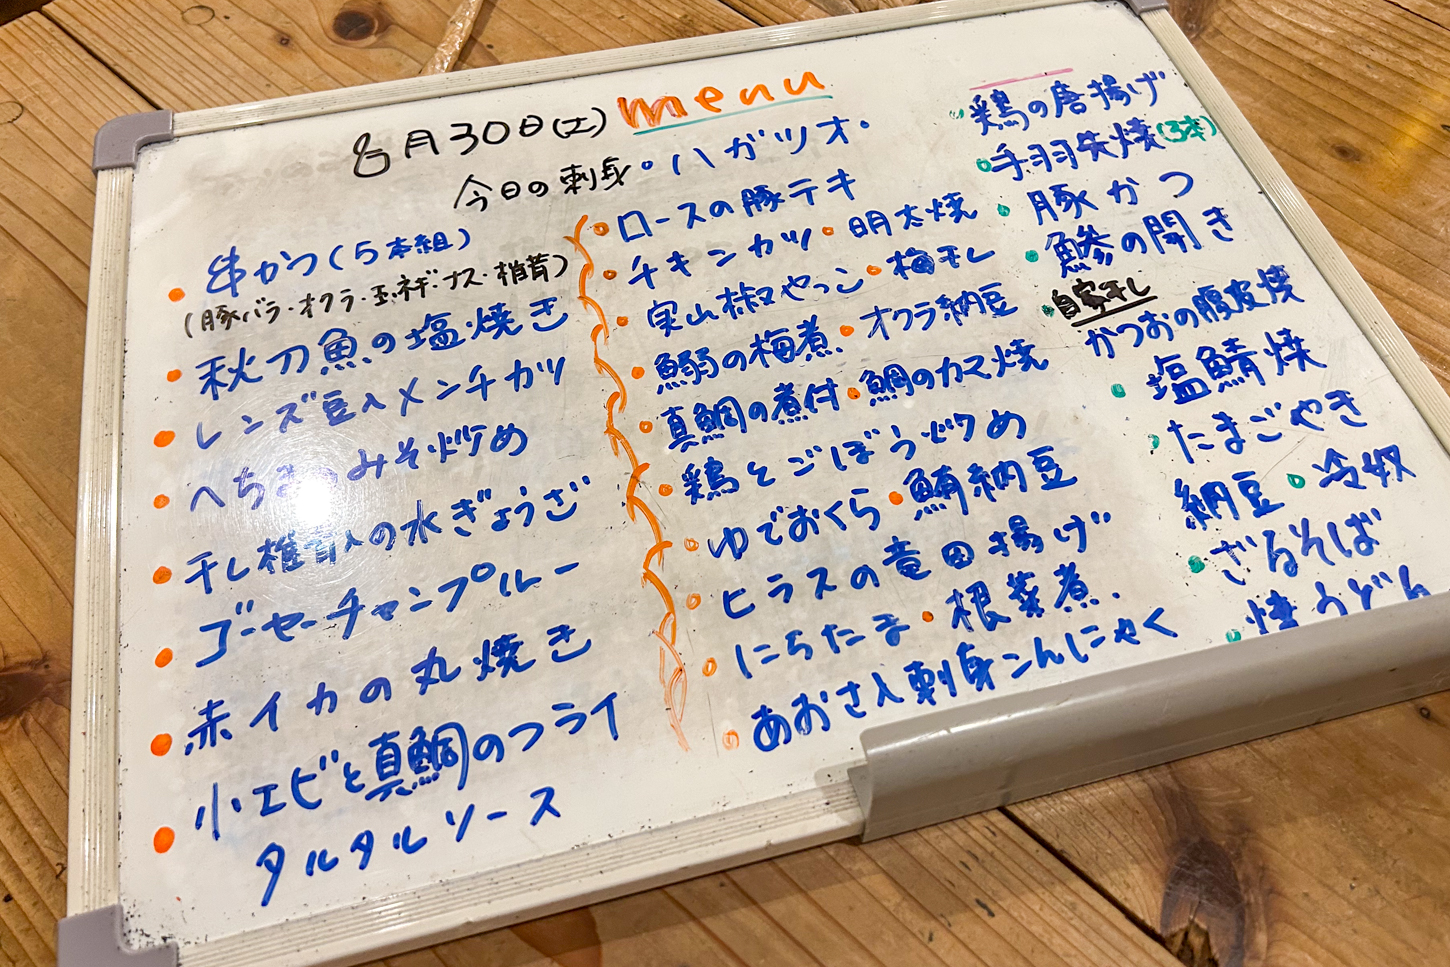 8月30日(土) menu
今日の刺身・ハガツオ・
・串かつ(5本組)
(豚バラ・オクラ・玉ネギ・ナス・椎茸)
・秋刀魚の塩焼き
・レンズ豆入メンチカツ
・へちまのみそ炒め
・干し椎茸入の水ぎょうざ
・ゴーヤーチャンプルー
・赤イカの丸焼き
・小エビと真鯛のフライ
タルタルソース
・ロースの豚テキ
・チキンカツ・明太焼
・実山椒やっこ・梅干し
・鰯の梅煮・オクラ納豆
・真鯛の煮付・鯛のカマ焼
・鶏とごぼう炒め
・ゆでおくら・鮪納豆
・ヒラスの竜田揚げ
・にらたま・根菜煮
・あおさ入刺身こんにゃく
・鶏の唐揚げ
・手羽先焼(3本)
・豚かつ
・鯵の開き
・自家干し
かつおの腹皮焼
・塩鯖焼
・たまごやき
納豆・冷奴
・ざるそば
・焼うどん